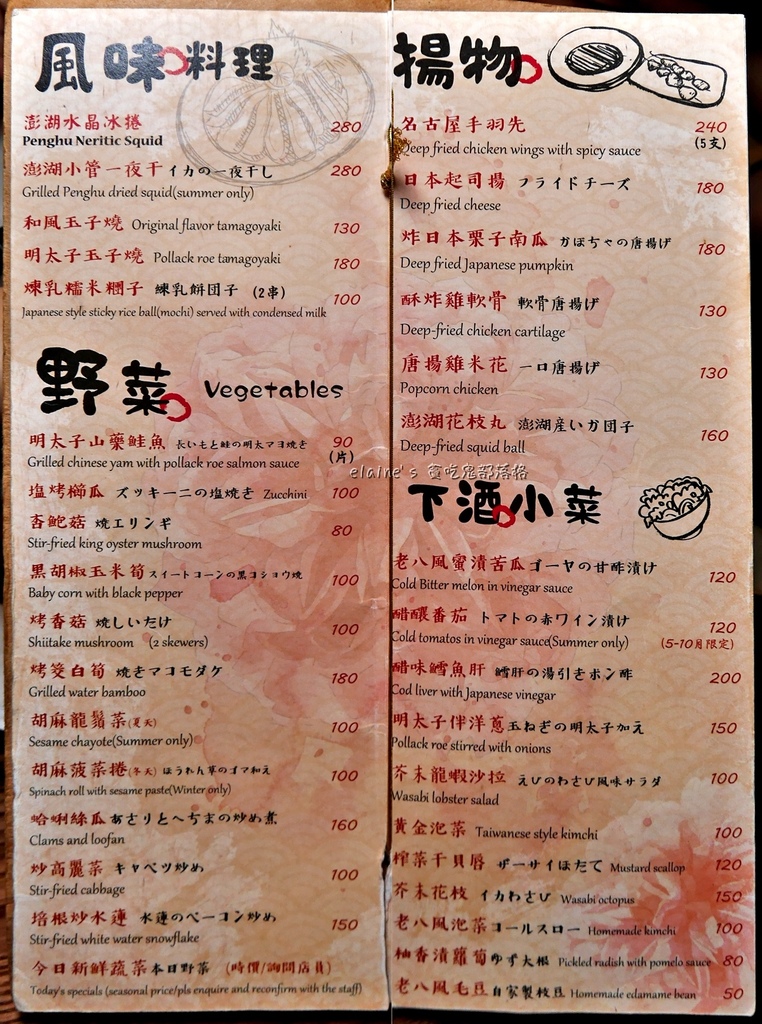 風味料理
澎湖水晶冰捲 280
Penghu Neritic Squid
澎湖小管一夜干 イカの一夜干し 280
Grilled Penghu dried squid(summer only)
和風玉子燒 Original flavor tamagoyaki 130
明太子玉子燒 Pollack roe tamagoyaki 180
煉乳糯米糰子 練乳餅団子 (2串) 100
Japanese style sticky rice ball(mochi) served with condensed milk
野菜 Vegetables
明太子山藥鮭魚 長いもと鮭の明太マヨ焼き 90
Grilled chinese yam with pollack roe salmon sauce (片)
塩烤櫛瓜 ズッキーニの塩焼き Zucchini 100
杏鮑菇 焼エリンギ 80
Stir-fried king oyster mushroom
黒胡椒玉米筍 スイートコーンの黒コショウ焼 100
Baby corn with black pepper
烤香菇 焼しいたけ 100
Shiitake mushroom (2 skewers)
烤筊白筍 焼きマコモダケ 180
Grilled water bamboo
胡麻龍鬚菜(夏天) 100
Sesame chayote(Summer only)
胡麻菠菜捲(冬天) ほうれん草のゴマ和え 100
Spinach roll with sesame paste(Winter only)
蛤蜊絲瓜 あさりとへちまの炒め煮 160
Clams and loofan
炒高麗菜 キャベツ炒め 100
Stir-fried cabbage
培根炒水蓮 水蓮のベーコン炒め 150
Stir-fried white water snowflake
今日新鮮蔬菜 本日野菜 (時價/詢問店員)
Today's specials (seasonal price/pls enquire and reconfirm with the staff)
揚物
名古屋手羽先 240
Deep fried chicken wings with spicy sauce (5支)
日本起司揚 フライドチーズ 180
Deep fried cheese
炸日本栗子南瓜 かぼちゃの唐揚げ 180
Deep fried Japanese pumpkin
酥炸雞軟骨 軟骨唐揚げ 130
Deep-fried chicken cartilage
唐揚雞米花 一口唐揚げ 130
Popcorn chicken
澎湖花枝丸 澎湖産いか団子 160
Deep-fried squid ball
elaine's 貪吃鬼部落格
下酒小菜
老八風蜜漬苦瓜 ゴーヤの甘酢漬け 120
Cold Bitter melon in vinegar sauce
醋釀番茄 トマトの赤ワイン漬け 120
Cold tomatos in vinegar sauce(Summer only) (5-10月限定)
醋味鱈魚肝 鱈肝の湯引きポン酢 200
Cod liver with Japanese vinegar
明太子伴洋蔥 玉ねぎの明太子加え 150
Pollack roe stirred with onions
芥末龍蝦沙拉 えびのわさび風味サラダ 100
Wasabi lobster salad
黃金泡菜 Taiwanese style kimchi 100
榨菜干貝唇 ザーサイほたて Mustard scallop 120
芥末花枝 イカわさび Wasabi octopus 150
老八風泡菜 コールスロー Homemade kimchi 100
柚香漬蘿蔔 ゆず大根 Pickled radish with pomelo sauce 80
老八風毛豆 自家製枝豆 Homemade edamame bean 50